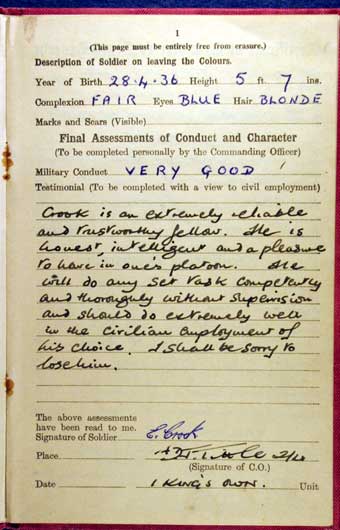 1
(This page must be entirely free from erasure.)
Description of Soldier on leaving the Colours.
Year of Birth 28.4.36 Height 5 ft. 7 ins.
Complexion FAIR Eyes BLUE Hair BLONDE
Marks and Scars (Visible)
Final Assessments of Conduct and Character
(To be completed personally by the Commanding Officer)
Military Conduct VERY GOOD
Testimonial (To be completed with a view to civil employment)
Crook is an extremely reliable
and trustworthy fellow. He is
honest, intelligent and a pleasure
to have in one's platoon. He
will do any set task competently
and thoroughly without supervision
and should do extremely well
in the civilian employment of
his choice. I shall be sorry to
lose him.
The above assessments
have been read to me.
Signature of Soldier E. Crook
Place
(Signature of C.O.)
Date 1 King's Own. Unit